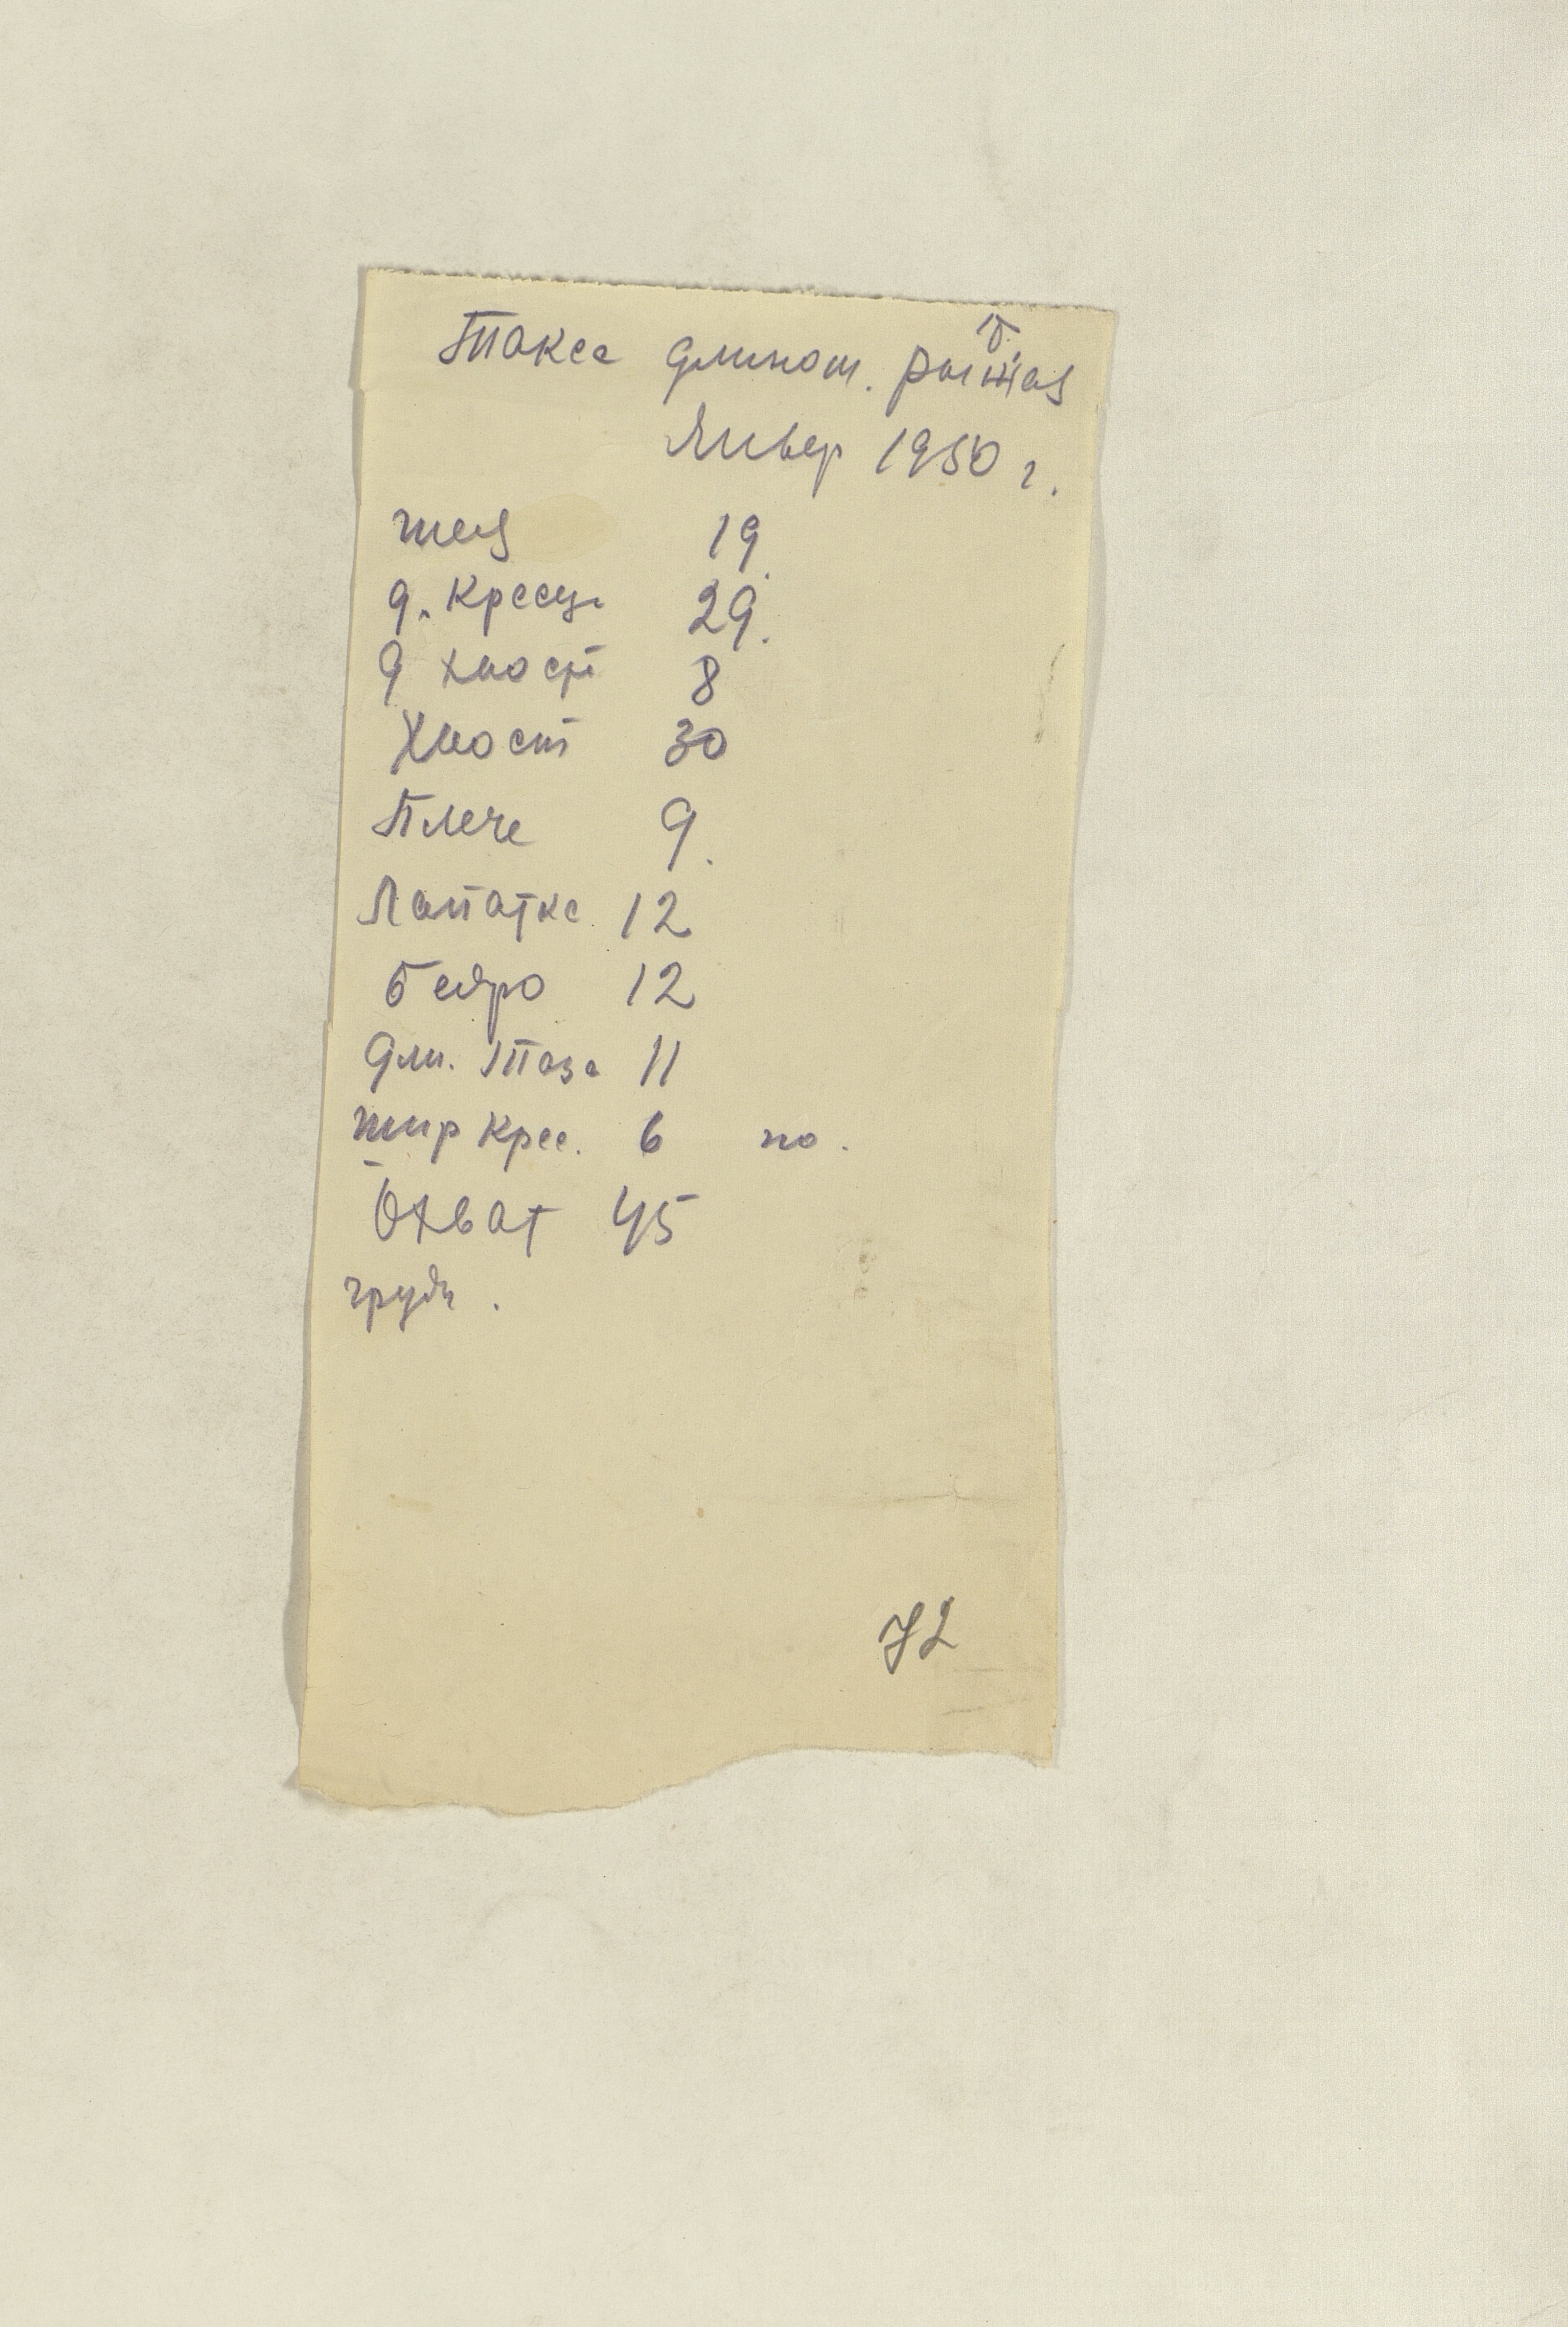 Такса длинош. рыжая
Январ 1950 г.
шея 19.
д. Кресц. 29.
д хвост 8
Хвост 30
Плече 9.
Лапатка 12
Бедро 12
Дли. Таза 11
шир Крес. 6 но.
Охват 45
груди.
72